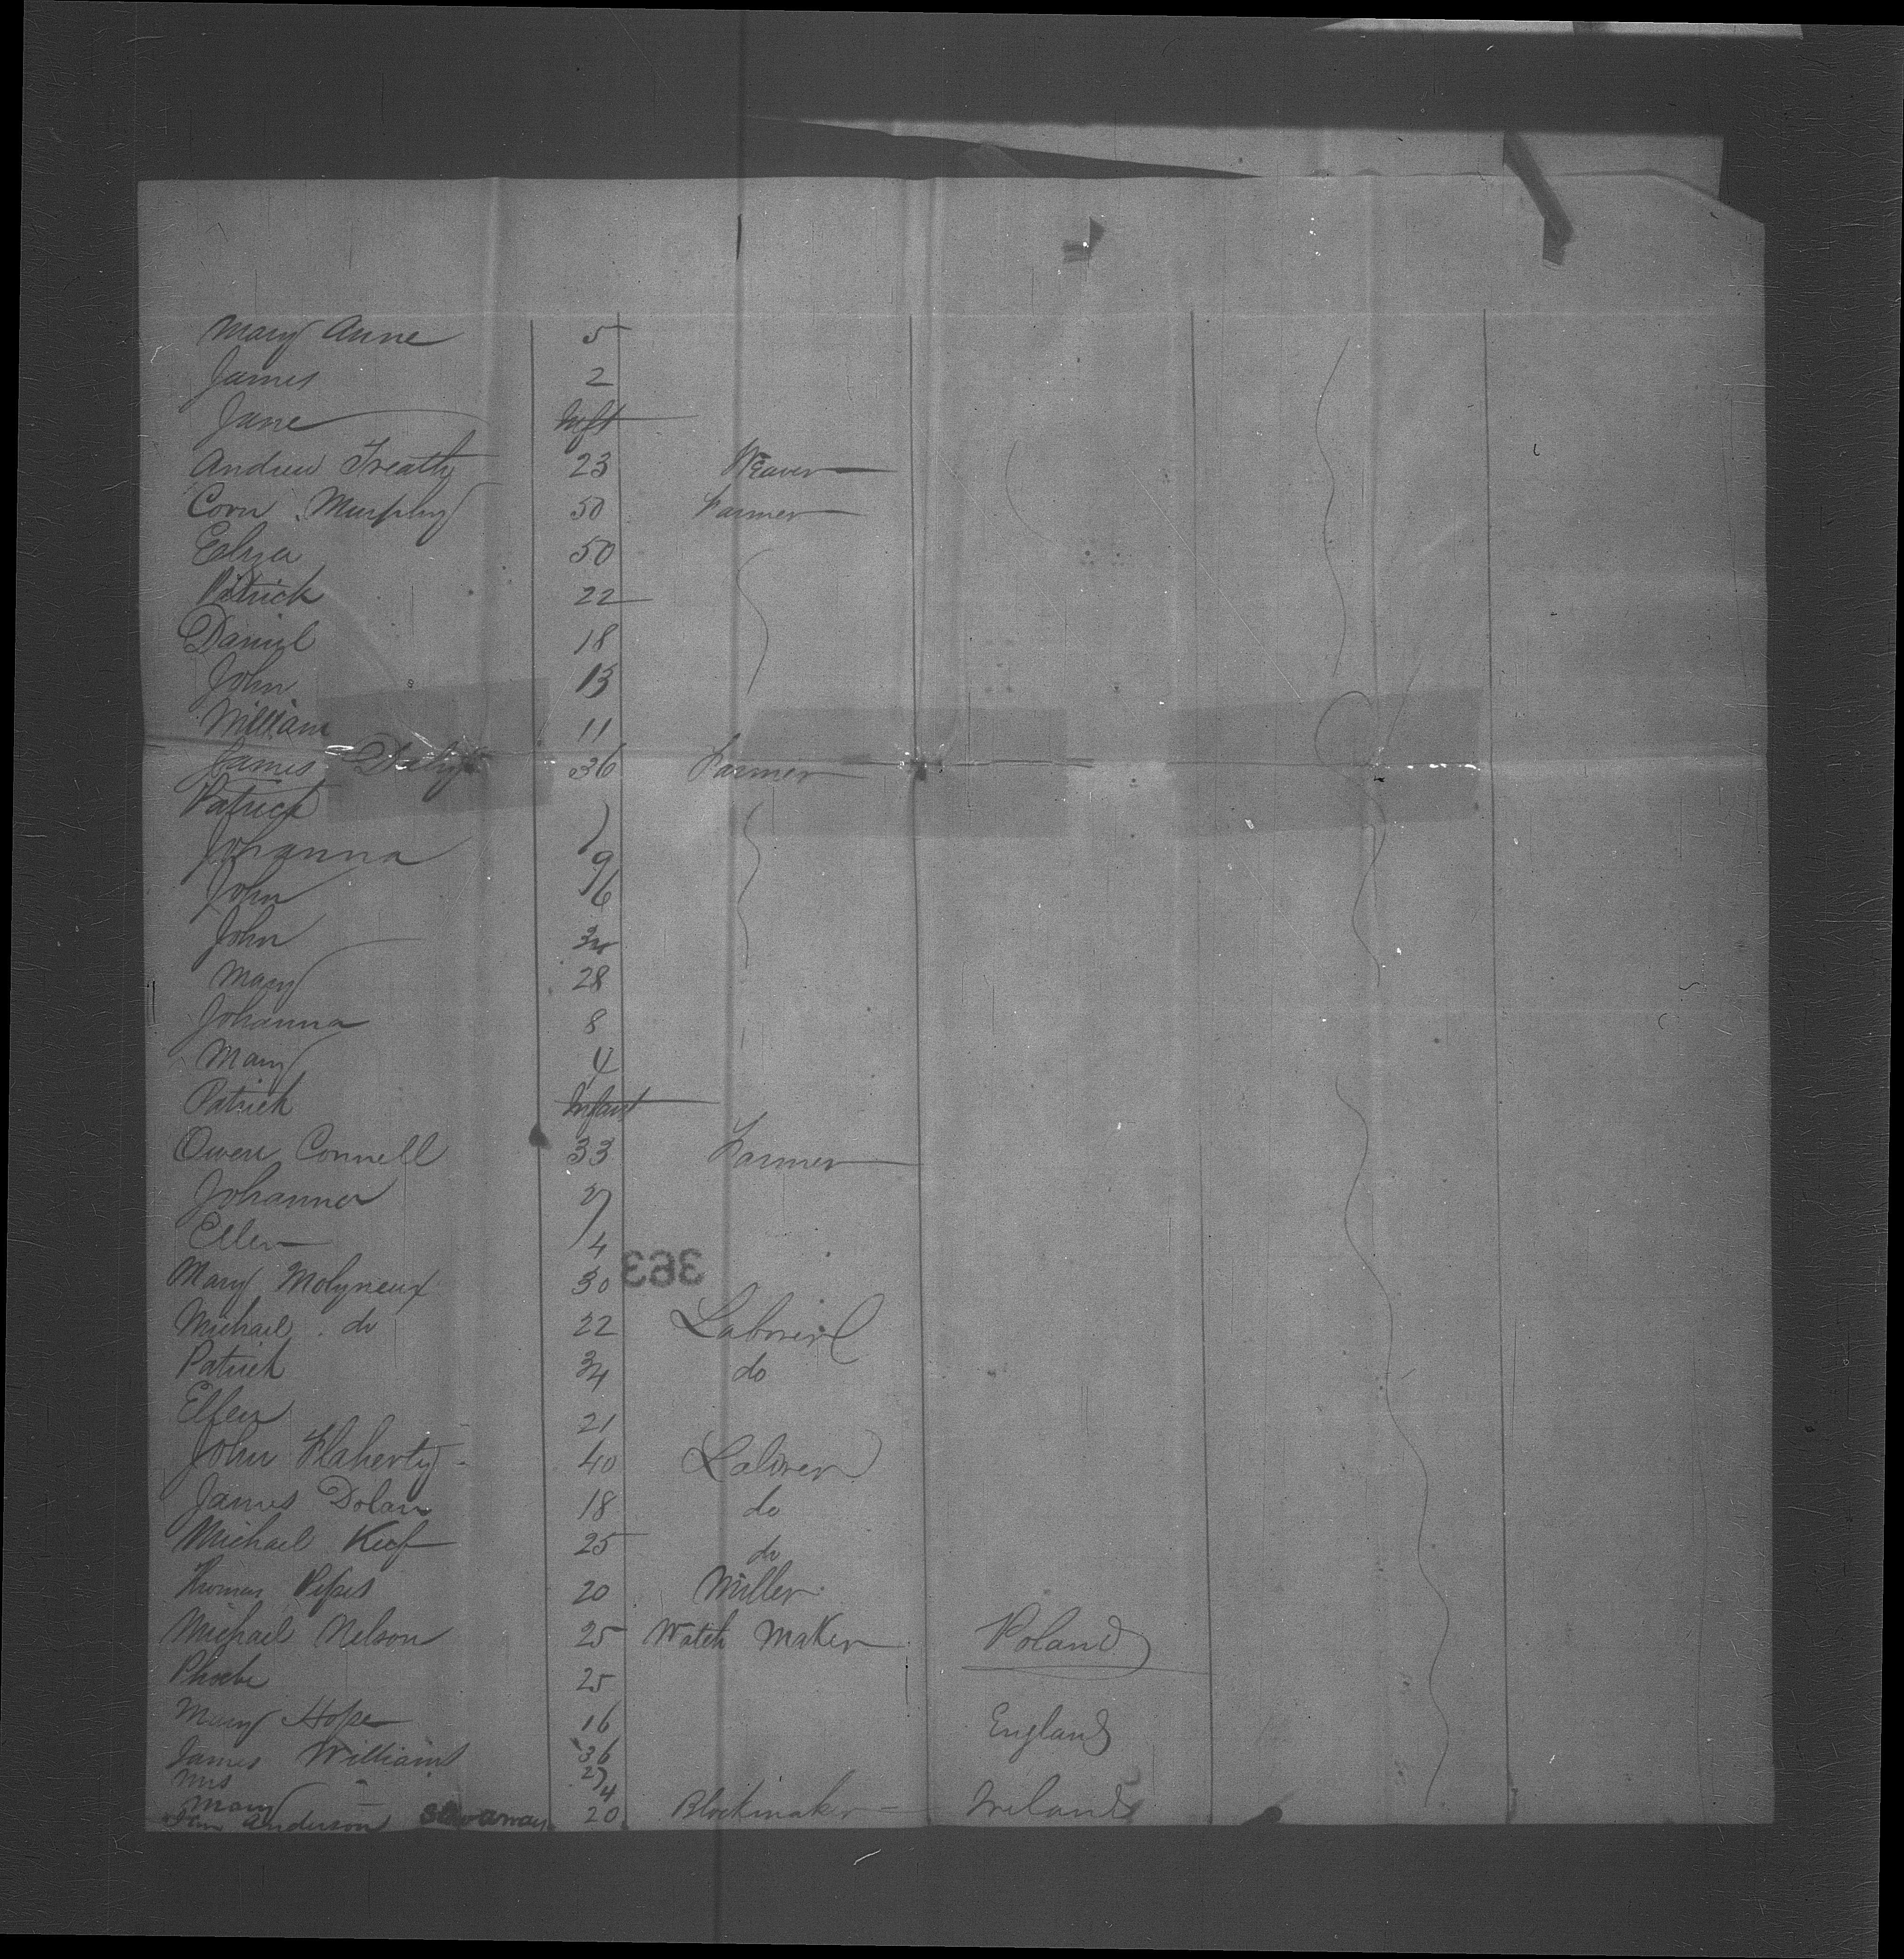 Mary Anne 5
James 2
Jane Inft
Andrew Treatty 23 Weaver
Corn Murphy 50 Farmer
Eliza 50
Patrick 22
Daniel 18
John 13
William 11
James Daly 36 Farmer
Patrick
Johanna 9
John 6
John
Mary 28
Johanna 8
Mary 4
Patrick Infant
Owen Connell 33 Farmer
Johanna 27
Ellen 4
363
Mary Molyneux 30
Michael do 22 Laborer
Patrick 34 do
Ellen 21
John Flaherty 40 Laborer
James Dolan 18 do
Michael Keef 25 do
Thomas 20 Miller
Michael Nelson 25 Watch Maker Poland
Phoebe 25
Mary Hope 16 England
James Williams 36
Mrs 27
Mary 4
Anderson Stowaway 20 Blockmaker Ireland